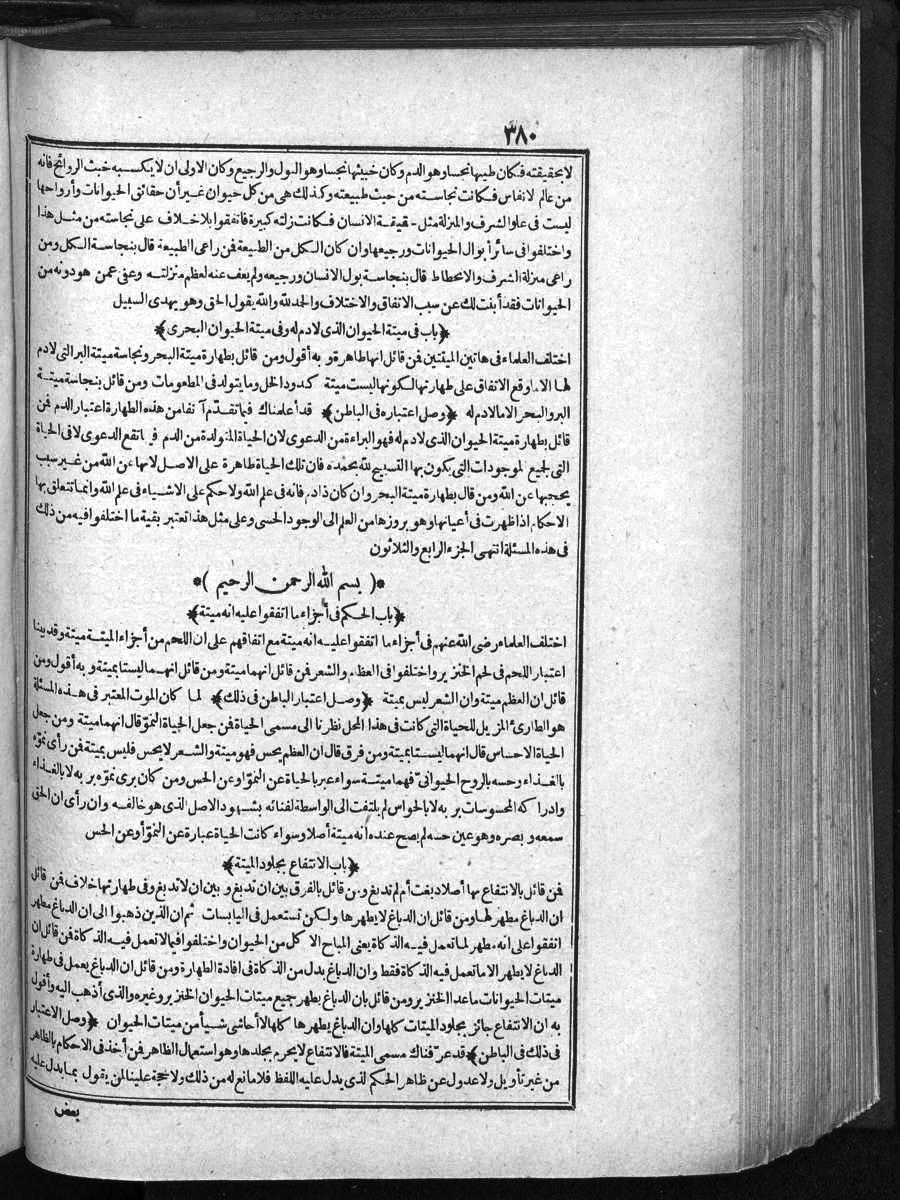 ٣٨٠
لا بحقيقته فكان طيبها نجسا وهو الدم وكان خبيثها نجسا وهو البول والرجيع وكان الاولى ان لا يكسبه خبث الروائح فانه
من عالم لانفاس فكانت نجاسته من حيث طبيعته وكذلك هى من كل حيوان غير أن حقائق الحيوانات وأرواحها
ليست فى علو الشرف والمنزلة مثل حقيقة الانسان فكانت زلته كبيرة فاتفقوا بلا خلاف على نجاسته من مثل هذا
واختلفوا فى سائر أبوال الحيوانات ورجيعها وان كان الكل من الطبيعة فن راعى الطبيعة قال بنجاسة الكل ومن
راعى منزلة الشرف والانحطاط قال بنجاسة بول الانسان ورجيعه ولم يعف عنه لعظم منزلته وعفى عمن هو دونه من
الحيوانات فقد أبنت لك عن سبب الاتفاق والاختلاف والحد لله والله يقول الحق وهو يهدى السبيل
﴿باب فى ميتة الحيوان الذى لا دم له وفى ميتة الحيوان البحرى﴾
اختلف العلماء فى هاتين الميتتين فن قائل انها طاهرة و به أقول ومن قائل بطهارة ميتة البحر ونجاسة ميتة البر التى لا دم
لها الا ما وقع الاتفاق على طهارتها لكونها ليست ميتة كدود الخل وما يتولد فى المطعومات ومن قائل بنجاسة ميتة
البر والبحر الا ما لا دم له ﴿وصل اعتباره فى الباطن﴾ قد أعلمناك فيما تقدّم آنفا من هذه الطهارة اعتبار الدم فن
قائل بطهارة ميتة الحيوان الذى لا دم له فهو البراءة من الدعوى لان الحياة المتولدة من الدم فيها تقع الدعوى لا فى الحياة
التى لجميع الموجودات التى يكون بها التسبيح لله بحمده فان تلك الحياة طاهرة على الاصل لانها عن الله من غير سبب
يحجبها عن الله ومن قال بطهارة ميتة البحر وان كان ذا دم فانه فى علم الله ولا حكم على الاشياء فى علم الله وانما تتعلق بها
الاحكام اذا ظهرت فى أعيانها وهو بروزها من العلم الى الوجود الحسى وعلى مثل هذا تعتبر بقية ما اختلفوا فيه من ذلك
فى هذه المسئلة انتهى الجزء الرابع والثلاثون
*( بسم الله الرحمن الرحيم )*
﴿باب الحكم فى أجزاء ما اتفقوا عليه انه ميتة﴾
اختلف العلماء رضى الله عنهم فى أجزاء ما اتفقوا عليه انه ميتة مع اتفاقهم على ان اللحم من أجزاء الميتة ميتة وقد بينا
اعتبار اللحم فى لحم الخنزير واختلفوا فى العظام والشعر فن قائل انهما ميتة ومن قائل انهما ليستا بميتة و به أقول ومن
قائل ان العظم ميتة وان الشعر ليس بميتة ﴿وصل اعتبار الباطن فى ذلك﴾ لما كان الموت المعتبر فى هذه المسئلة
هو الطارئ المزيل للحياة التى كانت فى هذا المحل نظرنا الى مسمى الحياة فن جعل الحياة النموّ قال انهما ميتة ومن جعل
الحياة الاحساس قال انهما ليستا بميتة ومن فرق قال ان العظم يحس فهو ميتة والشعر لا يحس فليس بميتة فن رأى نموّه
بالغذاء وحسه بالروح الحيوانىّ فهما ميتة سواء عبر بالحياة عن النموّ وعن الحس ومن كان يرى نموّه بربه لا بالغذاء
وادراكه المحسوسات بربه لا بالحواس لم يلتفت الى الواسطة لفنائه بشهود الاصل الذى هو خالقه وان رأى ان الحق
سمعه و بصره وهو عين حسه لم يصح عنده انه ميتة أصلا وسواء كانت الحياة عبارة عن النموّ أو عن الحس
﴿باب الانتفاع بجلود الميتة﴾
فن قائل بالانتفاع بها أصلا دبغت أم لم تدبغ ومن قائل بالفرق بين ان تدبغ و بين ان لا تدبغ وفى طهارتها خلاف فن قائل
ان الدباغ مطهر لها ومن قائل ان الدباغ لا يطهرها ولكن تستعمل فى اليابسات ثم ان الذين ذهبوا الى ان الدباغ مطهر
اتفقوا على انه مطهر لما تعمل فيه الذكاة يعنى المباح الاكل من الحيوان واختلفوا فيما لا تعمل فيه الذكاة فن قائل ان
الدباغ لا يطهر الا ما تعمل فيه الذكاة فقط وان الدباغ بدل من الذكاة فى افادة الطهارة ومن قائل ان الدباغ يعمل فى طهارة
ميتات الحيوانات ما عدا الخنزير ومن قائل بان الدباغ يطهر جميع ميتات الحيوان الخنزير وغيره والذى أذهب اليه وأقول
به ان الانتفاع جائز بجلود الميتات كلها وان الدباغ يطهرها كلها لا أحاشى شيأ من ميتات الحيوان ﴿وصل الاعتبار
فى ذلك فى الباطن﴾ قد عرّفناك مسمى الميتة فالانتفاع لا يحرم بجلدها وهو استعمال الظاهر فن أخذ فى الاحكام بالظاهر
من غير تأويل ولا عدول عن ظاهر الحكم لذى يدل عليه اللفظ فلا مانع له من ذلك ولا حجة علينا لمن يقول بما يدل عليه
بعض